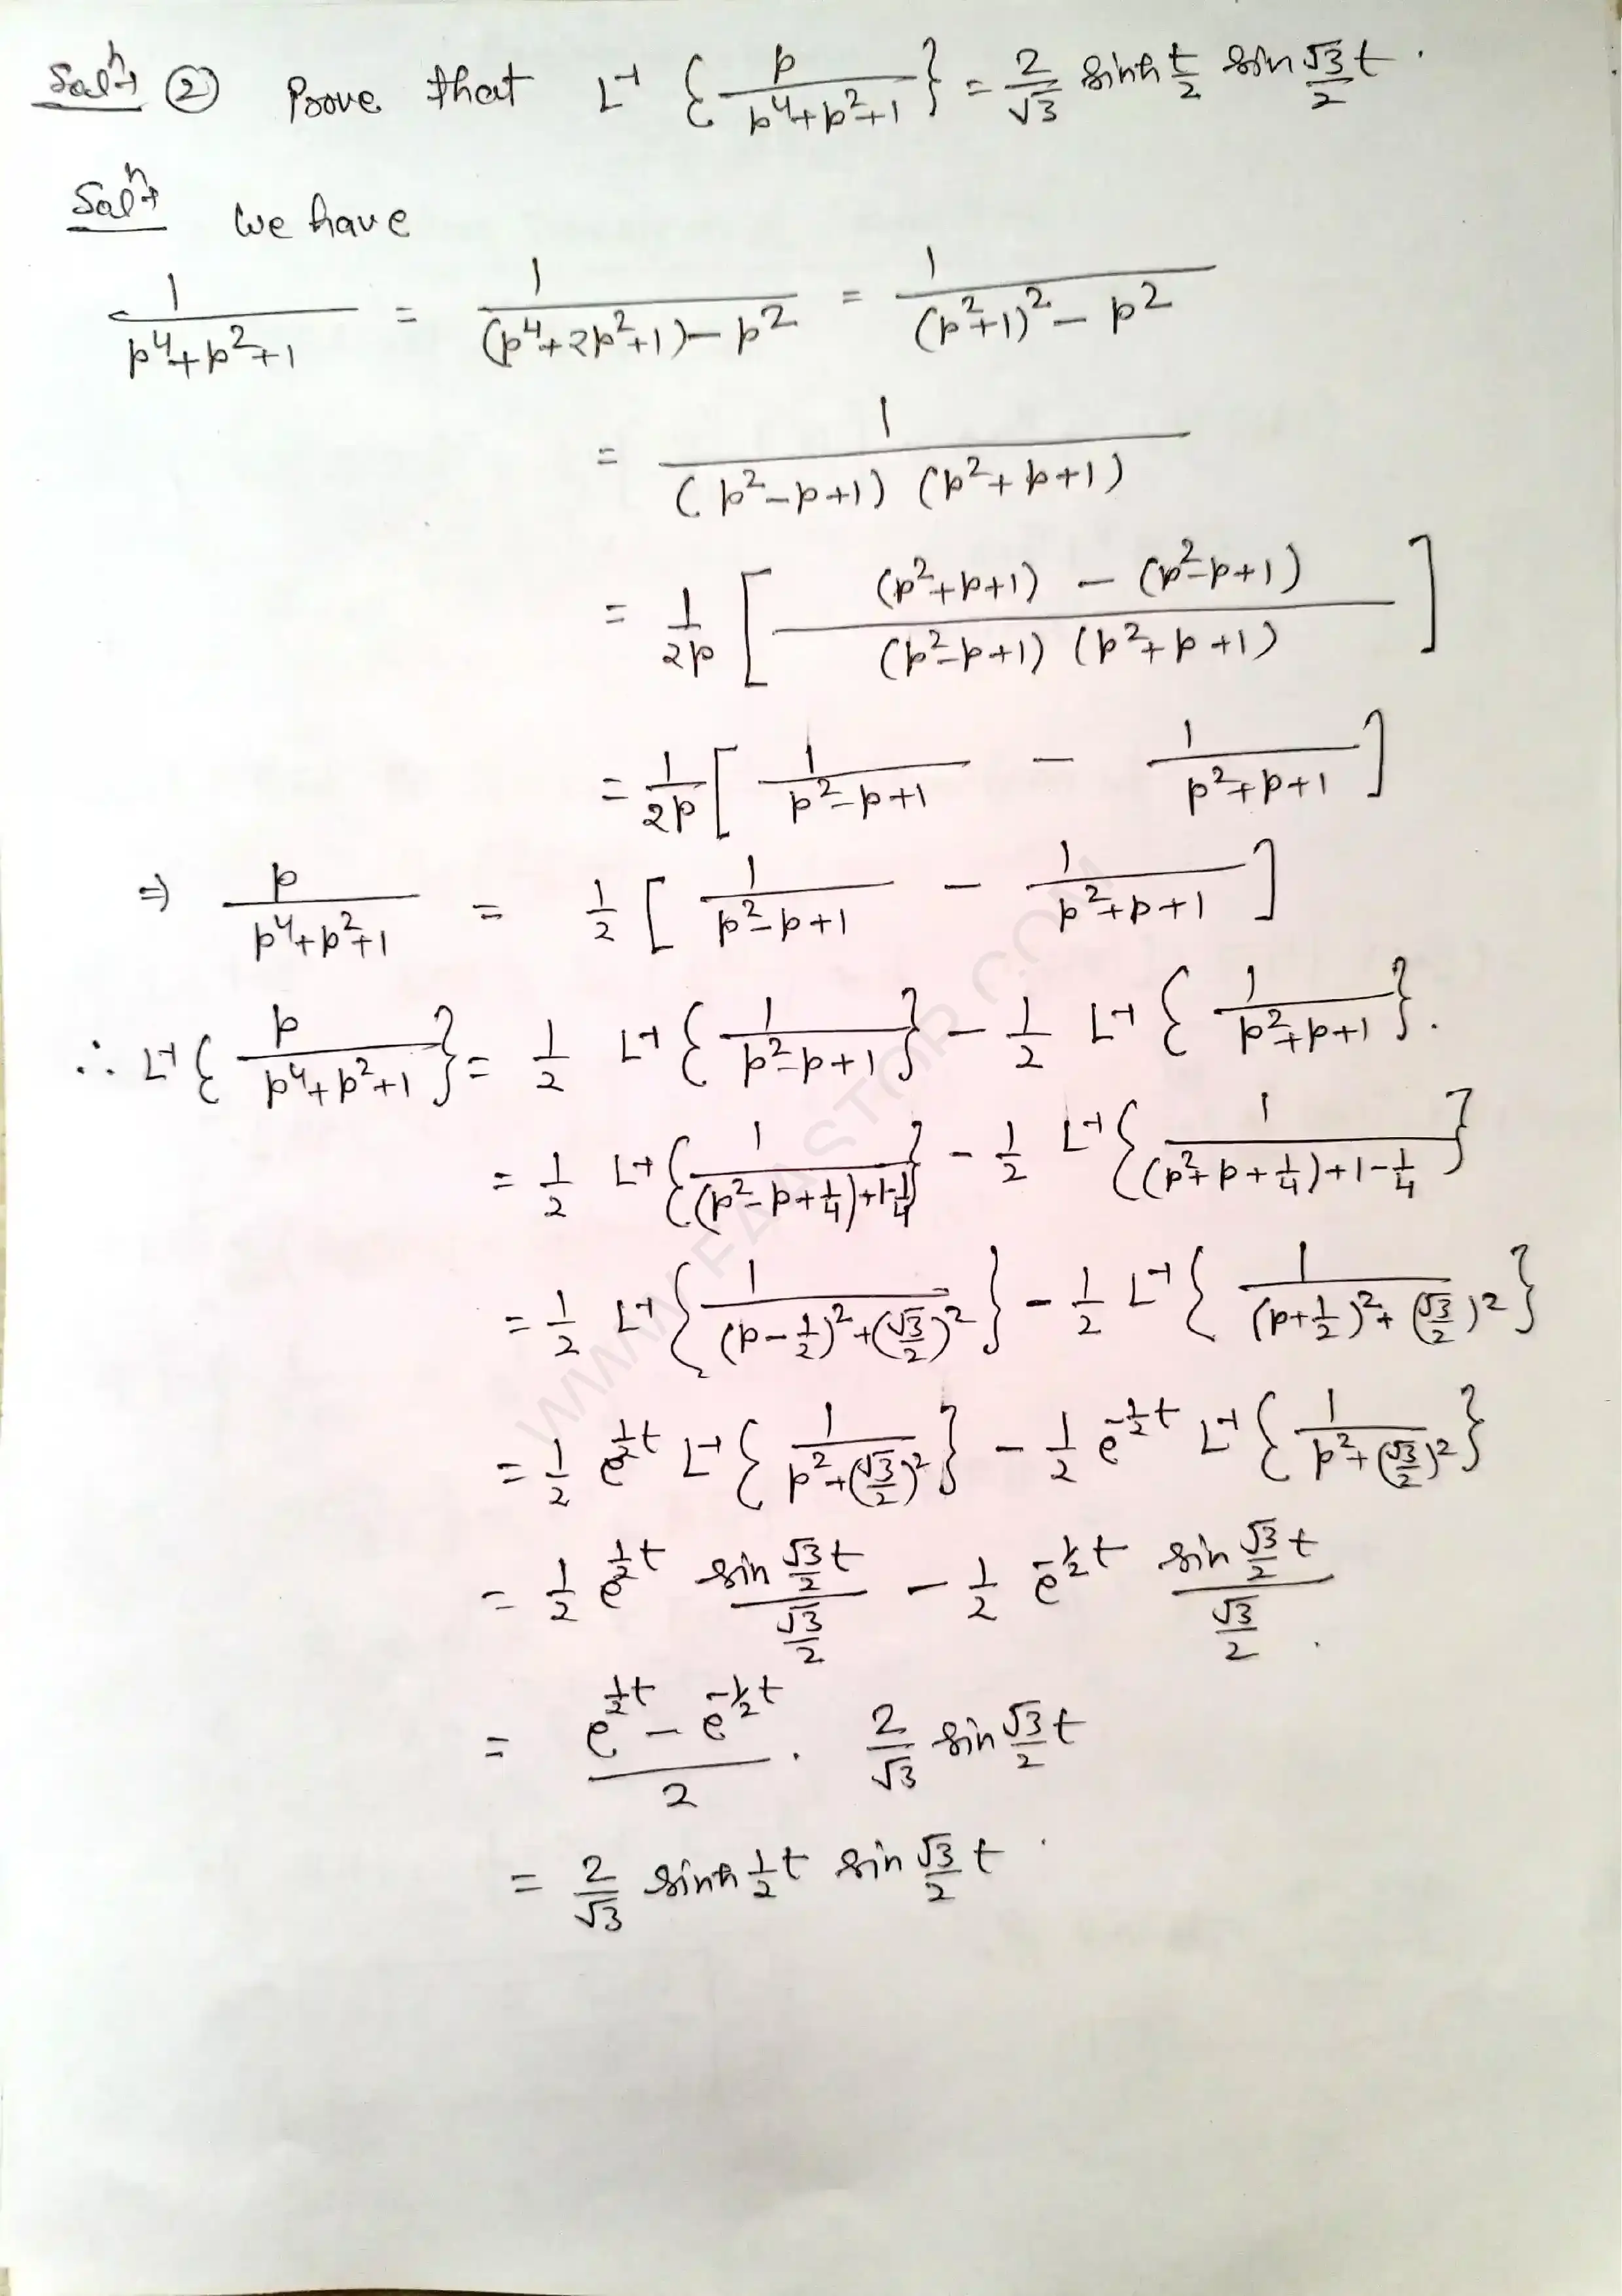 Solⁿ→ ② Prove that L⁻¹ { p/(p⁴+p²+1) } = 2/√3 sinh t/2 sin √3/2 t.
Solⁿ→ We have
1/(p⁴+p²+1) = 1/((p⁴+2p²+1)-p²) = 1/((p²+1)²-p²)
= 1/((p²-p+1) (p²+p+1))
= 1/2p [ ((p²+p+1) - (p²-p+1))/((p²-p+1) (p²+p+1)) ]
= 1/2p [ 1/(p²-p+1) - 1/(p²+p+1) ]
⇒ p/(p⁴+p²+1) = 1/2 [ 1/(p²-p+1) - 1/(p²+p+1) ]
∴ L⁻¹{ p/(p⁴+p²+1) } = 1/2 L⁻¹{ 1/(p²-p+1) } - 1/2 L⁻¹{ 1/(p²+p+1) }.
= 1/2 L⁻¹{ 1/((p²-p+1/4)+1-1/4) } - 1/2 L⁻¹{ 1/((p²+p+1/4)+1-1/4) }
= 1/2 L⁻¹{ 1/((p-1/2)²+(√3/2)²) } - 1/2 L⁻¹{ 1/((p+1/2)²+(√3/2)²) }
= 1/2 e^(1/2 t) L⁻¹{ 1/(p²+(√3/2)²) } - 1/2 e^(-1/2 t) L⁻¹{ 1/(p²+(√3/2)²) }
= 1/2 e^(1/2 t) (sin √3/2 t)/(√3/2) - 1/2 e^(-1/2 t) (sin √3/2 t)/(√3/2).
= (e^(1/2 t) - e^(-1/2 t))/2 . 2/√3 sin √3/2 t
= 2/√3 sinh 1/2 t sin √3/2 t.
WWW.FAASTOP.COM